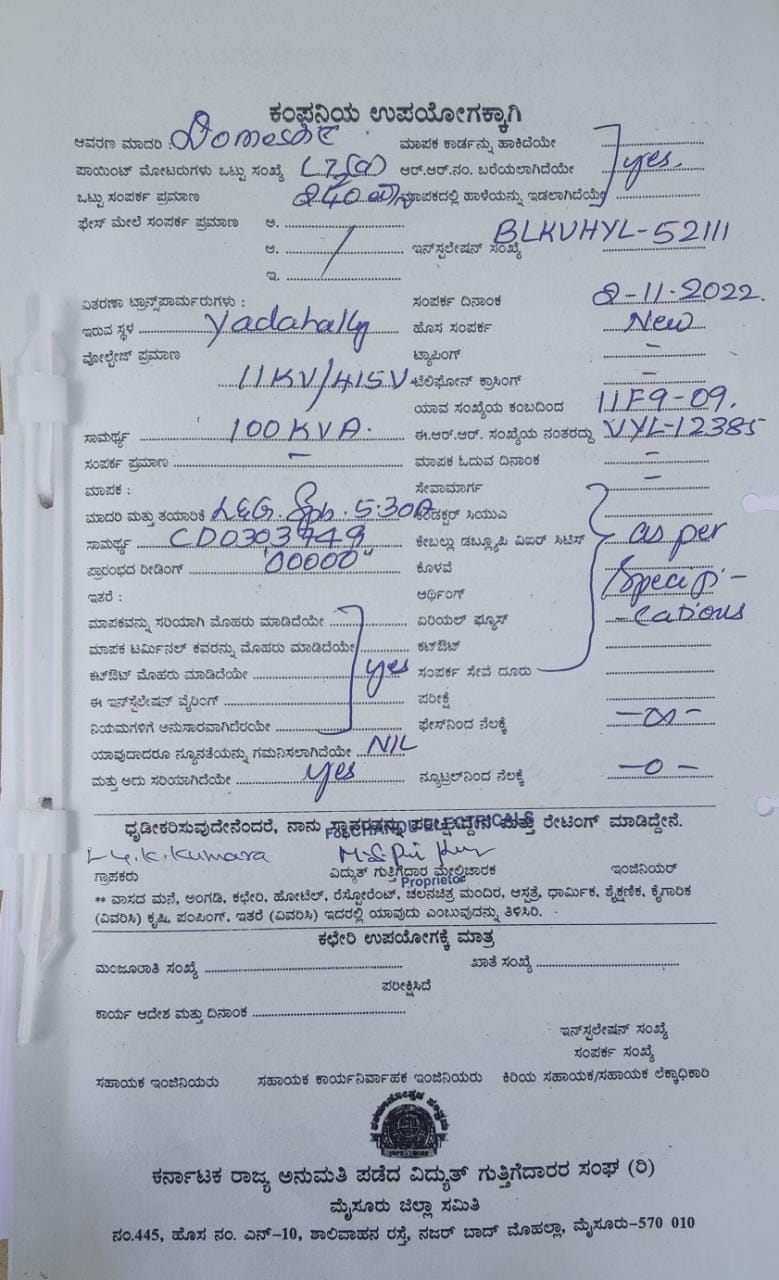 ಕಂಪನಿಯ ಉಪಯೋಗಕ್ಕಾಗಿ
ಆವರಣ ಮಾದರಿ : Domestic ಮಾಪಕ ಕಾರ್ಡನ್ನು ಹಾಕಿದೆಯೇ
ಪಾಯಿಂಟ್ ಮೋಟರುಗಳು ಒಟ್ಟು ಸಂಖ್ಯೆ ಆರ್.ಆರ್.ನಂ. ಬರೆಯಲಾಗಿದೆಯೇ yes.
ಒಟ್ಟು ಸಂಪರ್ಕ ಪ್ರಮಾಣ 240 ಮಾಪಕದಲ್ಲಿ ಹಾಳೆಯನ್ನು ಇಡಲಾಗಿದೆಯೇ
ಫೇಸ್ ಮೇಲೆ ಸಂಪರ್ಕ ಪ್ರಮಾಣ ಅ.
BLKVHYL-52111
ಆ. ಇನ್‌ಸ್ಟಲೇಷನ್ ಸಂಖ್ಯೆ
ಇ.
ವಿತರಣಾ ಟ್ರಾನ್ಸ್‌ಪಾರ್ಮರುಗಳು : ಸಂಪರ್ಕ ದಿನಾಂಕ 2-11-2022.
ಇರುವ ಸ್ಥಳ Yadahally ಹೊಸ ಸಂಪರ್ಕ New
ವೋಲ್ಟೇಜ್ ಪ್ರಮಾಣ ಟ್ಯಾಪಿಂಗ್ -
11KV/415V ಟೆಲಿಫೋನ್ ಕ್ರಾಸಿಂಗ್ -
ಯಾವ ಸಂಖ್ಯೆಯ ಕಂಬದಿಂದ 11F9-09.
ಸಾಮರ್ಥ್ಯ 100KVA. ಈ.ಆರ್.ಆರ್. ಸಂಖ್ಯೆಯ ನಂತರದ್ದು VYL-12385
ಸಂಪರ್ಕ ಪ್ರಮಾಣ - ಮಾಪಕ ಓದುವ ದಿನಾಂಕ -
ಮಾಪಕ : ಸೇವಾಮಾರ್ಗ -
ಮಾದರಿ ಮತ್ತು ತಯಾರಿಕೆ L&G. Sph. 5-30A ಕಂಡಕ್ಟರ್ ಸಿಯುವಿ
ಸಾಮರ್ಥ್ಯ CD0303949 ಕೇಬಲ್ಲು ಡಬ್ಲ್ಯೂಪಿ ವಿಐರ್ ಸಿಟಿಸ್ as per
ಪ್ರಾರಂಭದ ರೀಡಿಂಗ್ "00000" ಕೊಳವೆ Specifi-
ಇತರೆ : ಆರ್ಥಿಂಗ್
ಮಾಪಕವನ್ನು ಸರಿಯಾಗಿ ಮೊಹರು ಮಾಡಿದೆಯೇ ಏರಿಯಲ್ ಫ್ಯೂಸ್ -cations
ಮಾಪಕ ಟರ್ಮಿನಲ್ ಕವರನ್ನು ಮೊಹರು ಮಾಡಿದೆಯೇ ಕಟ್‌ಔಟ್
ಕಟ್‌ಔಟ್ ಮೊಹರು ಮಾಡಿದೆಯೇ yes ಸಂಪರ್ಕ ಸೇವೆ ದೂರು
ಈ ಇನ್‌ಸ್ಟಲೇಷನ್ ವೈರಿಂಗ್ ಪರೀಕ್ಷೆ
ನಿಯಮಗಳಿಗೆ ಅನುಸಾರವಾಗಿದೆರಯೇ ಫೇಸ್‌ನಿಂದ ನೆಲಕ್ಕೆ -∞-
ಯಾವುದಾದರೂ ನ್ಯೂನತೆಯನ್ನು ಗಮನಿಸಲಾಗಿದೆಯೇ NIL
ಮತ್ತು ಅದು ಸರಿಯಾಗಿದೆಯೇ yes ನ್ಯೂಟ್ರಲ್‌ನಿಂದ ನೆಲಕ್ಕೆ -0-
ಧೃಡೀಕರಿಸುವುದೇನೆಂದರೆ, ನಾನು ಸ್ಥಾವರವನ್ನು ಪರೀಕ್ಷಿಸಿದ್ದೇನೆ ಮತ್ತು ರೇಟಿಂಗ್ ಮಾಡಿದ್ದೇನೆ.
ELECTRICALS
K. Kumara
ಗ್ರಾಹಕರು ವಿದ್ಯುತ್ ಗುತ್ತಿಗೆದಾರ ಮೇಲ್ವಿಚಾರಕ ಇಂಜಿನಿಯರ್
Proprietor
** ವಾಸದ ಮನೆ, ಅಂಗಡಿ, ಕಛೇರಿ, ಹೋಟೆಲ್, ರೆಸ್ಟೋರೆಂಟ್, ಚಲನಚಿತ್ರ ಮಂದಿರ, ಆಸ್ಪತ್ರೆ, ಧಾರ್ಮಿಕ, ಶೈಕ್ಷಣಿಕ, ಕೈಗಾರಿಕ
(ವಿವರಿಸಿ) ಕೃಷಿ, ಪಂಪಿಂಗ್, ಇತರೆ (ವಿವರಿಸಿ) ಇದರಲ್ಲಿ ಯಾವುದು ಎಂಬುವುದನ್ನು ತಿಳಿಸಿರಿ.
ಕಛೇರಿ ಉಪಯೋಗಕ್ಕೆ ಮಾತ್ರ
ಮಂಜೂರಾತಿ ಸಂಖ್ಯೆ ಖಾತೆ ಸಂಖ್ಯೆ
ಪರೀಕ್ಷಿಸಿದೆ
ಕಾರ್ಯ ಆದೇಶ ಮತ್ತು ದಿನಾಂಕ
ಇನ್‌ಸ್ಟಲೇಷನ್ ಸಂಖ್ಯೆ
ಸಂಪರ್ಕ ಸಂಖ್ಯೆ
ಸಹಾಯಕ ಇಂಜಿನಿಯರು ಸಹಾಯಕ ಕಾರ್ಯನಿರ್ವಾಹಕ ಇಂಜಿನಿಯರು ಕಿರಿಯ ಸಹಾಯಕ/ಸಹಾಯಕ ಲೆಕ್ಕಾಧಿಕಾರಿ
ಕರ್ನಾಟಕ ರಾಜ್ಯ ಅನುಮತಿ ಪಡೆದ ವಿದ್ಯುತ್ ಗುತ್ತಿಗೆದಾರರ ಸಂಘ (ರಿ)
ಮೈಸೂರು ಜಿಲ್ಲಾ ಸಮಿತಿ
ನಂ.445, ಹೊಸ ನಂ. ಎನ್-10, ಶಾಲಿವಾಹನ ರಸ್ತೆ, ನಜರ್ ಬಾದ್ ಮೊಹಲ್ಲಾ, ಮೈಸೂರು-570 010